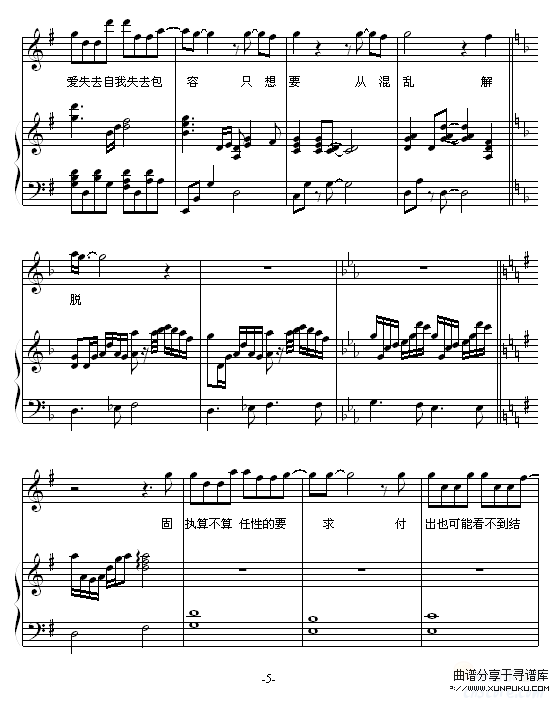 爱失去自我失去包 容 只 想 要 从 混 乱 解
脱
固 执算不算 任性的要 求 付 出也可能看不到结
-5-
曲谱分享于寻谱库
HTTP://WWW.XUNPUKU.COM